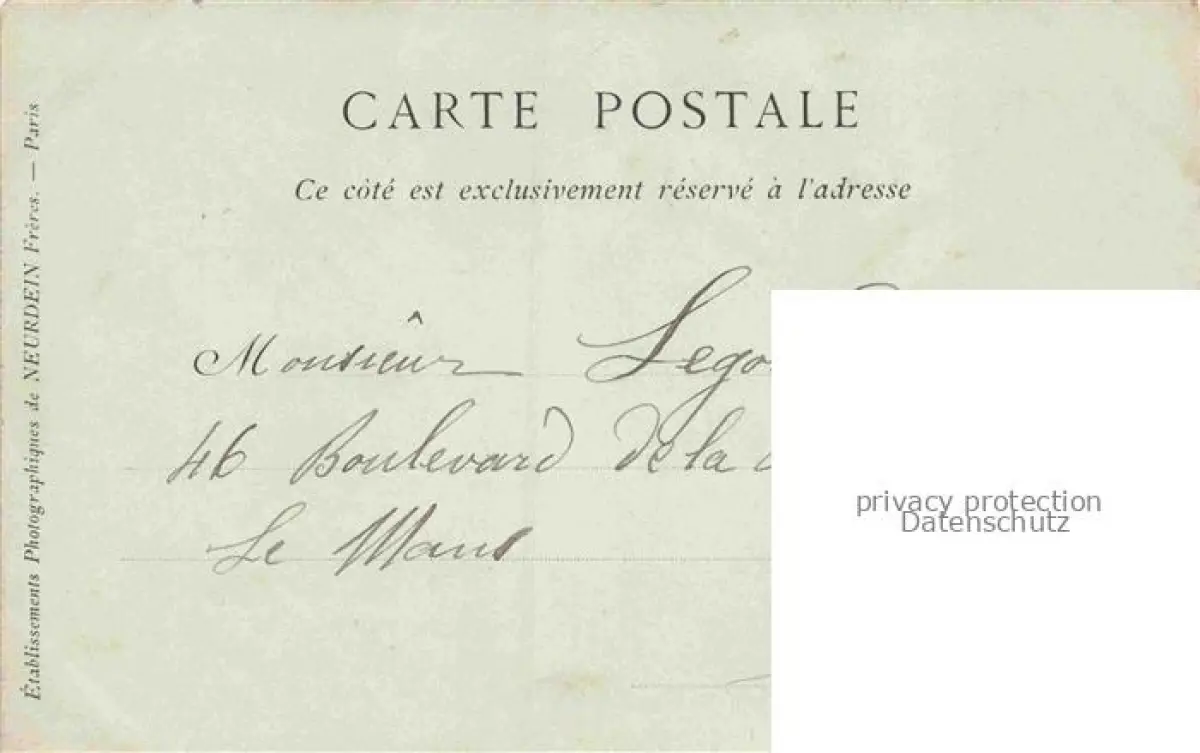 CARTE POSTALE
Ce côté est exclusivement réservé à l'adresse
Monsieur
46 Boulevard de la
Le Mans
Établissements Photographiques de NEURDEIN Frères. — Paris
privacy protection
Datenschutz